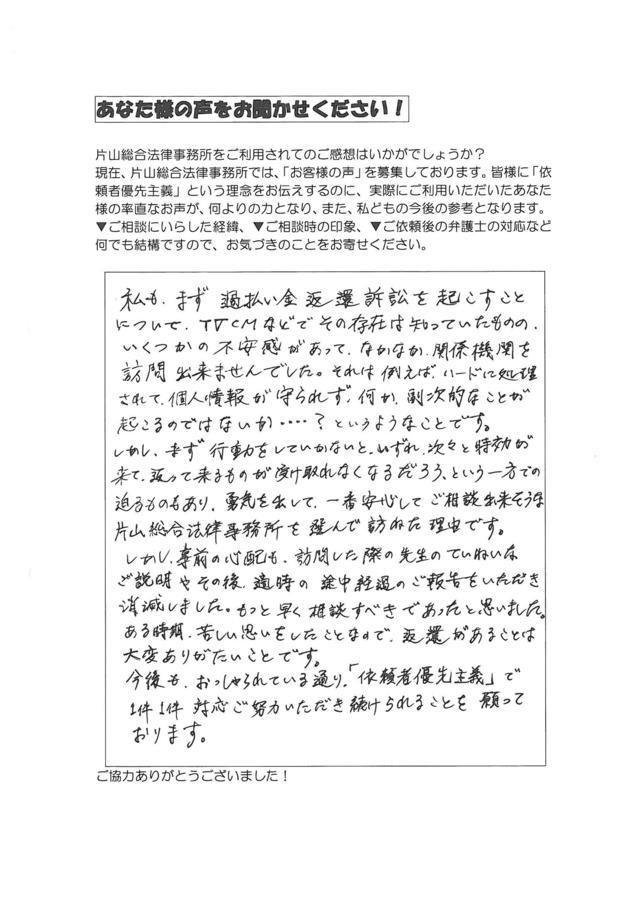 あなた様の声をお聞かせください!
片山総合法律事務所をご利用されてのご感想はいかがでしょうか?
現在、片山総合法律事務所では、「お客様の声」を募集しております。皆様に「依
頼者優先主義」という理念をお伝えするのに、実際にご利用いただいたあなた
様の率直なお声が、何よりの力となり、また、私どもの今後の参考となります。
▼ご相談にいらした経緯、▼ご相談時の印象、▼ご依頼後の弁護士の対応など
何でも結構ですので、お気づきのことをお寄せください。
私も、まず 過払い金 返還 訴訟 を 起こすこと
について、TVCMなどで その存在は知っていたものの、
いくつかの 不安感があって、なかなか、関係機関を
訪問 出来ませんでした。それは 例えば、ハードに処理
されて、個人情報が 守られず、何か、副次的なことが
起こるのではないか・・・・? というようなことです。
しかし、まず 行動をしていかないと、いずれ、次々と時効が
来て、返って来るものが受け取れなくなるだろう、という一方での
迫るものもあり、勇気を出して、一番安心して ご相談出来そうな
片山総合法律事務所を 選んで 訪ねた 理由です。
しかし、事前の心配も、訪問した際の先生の ていねいな
ご説明 やその後、適時の 途中経過のご報告をいただき
消滅しました。もっと早く 相談すべきであったと思いました。
ある時期、苦しい思いをしたことなので、返還があることは
大変ありがたいことです。
今後も、おっしゃられている通り、「依頼者優先主義」で
1件1件 対応ご努力いただき 続けられることを 願って
おります。
ご協力ありがとうございました!